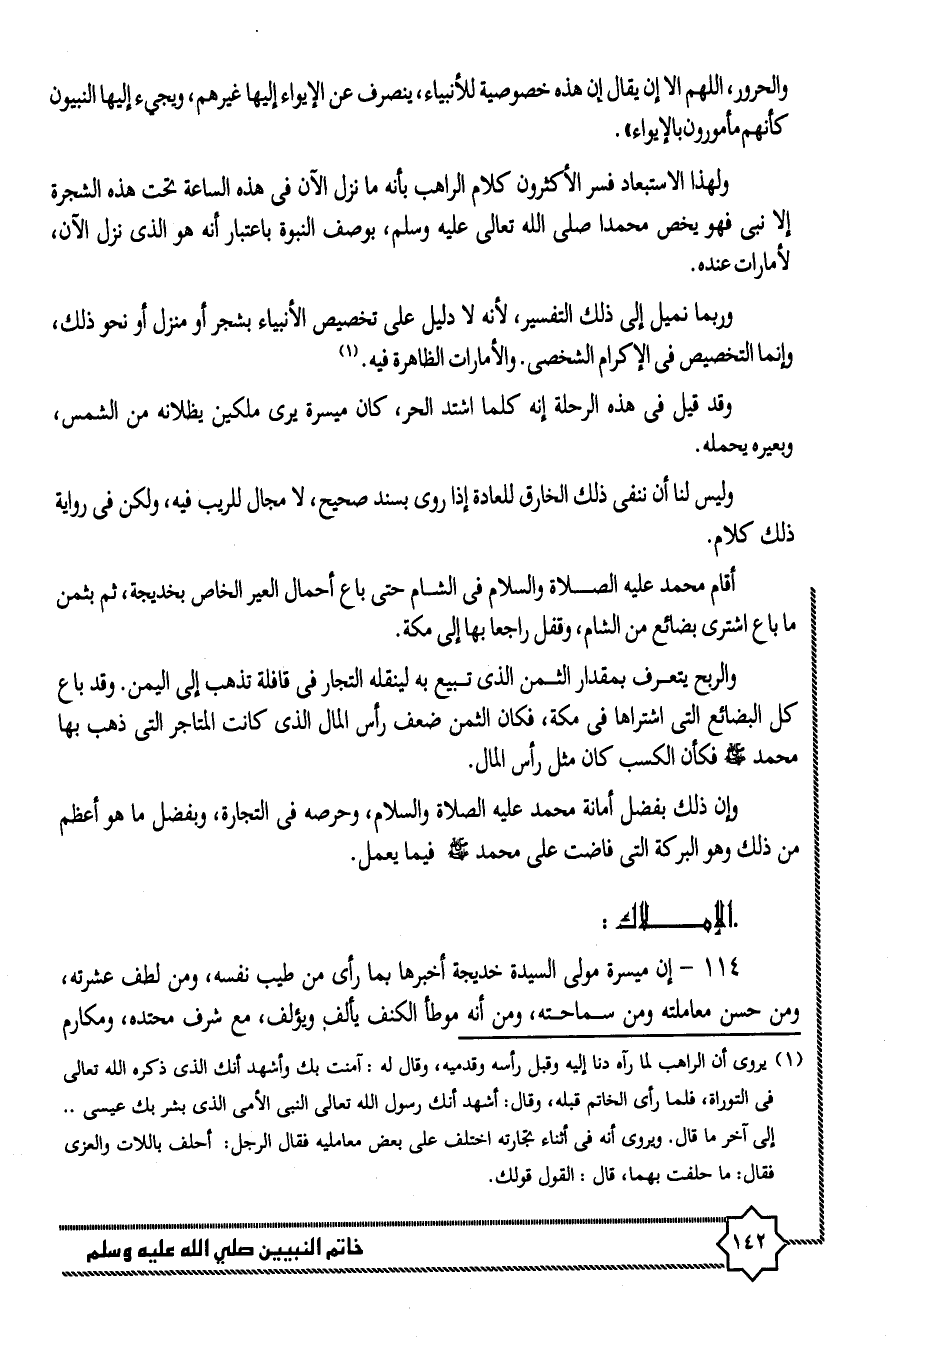 والحرور، اللهم الا إن يقال إن هذه خصوصية للأنبياء، ينصرف عن الإيواء إليها غيرهم، ويجيء إليها النبيون
كأنهم مأمورون بالإيواء» .
ولهذا الاستبعاد فسر الأكثرون كلام الراهب بأنه ما نزل الآن فى هذه الساعة تحت هذه الشجرة
إلا نبى فهو يخص محمدا صلى الله تعالى عليه وسلم، بوصف النبوة باعتبار أنه هو الذى نزل الآن،
لأمارات عنده.
وربما نميل إلى ذلك التفسير، لأنه لا دليل على تخصيص الأنبياء بشجر أو منزل أو نحو ذلك،
وإنما التخصيص فى الإكرام الشخصى. والأمارات الظاهرة فيه. (١)
وقد قيل فى هذه الرحلة إنه كلما اشتد الحر، كان ميسرة يرى ملكين يظلانه من الشمس،
وبعيره يحمله.
وليس لنا أن ننفى ذلك الخارق للعادة إذا روى بسند صحيح، لا مجال للريب فيه، ولكن فى رواية
ذلك كلام.
أقام محمد عليه الصـــلاة والسلام فى الشـام حتى باع أحمال العير الخاص بخديجة، ثم بثمن
ما باع اشترى بضائع من الشام، وقفل راجعا بها إلى مكة.
والربح يتعـرف بمقدار الثـمن الذى تـبيع به لينقله التجار فى قافلة تذهب إلى اليمن. وقد باع
كل البضائع التى اشتراها فى مكة، فكان الثمن ضعف رأس المال الذى كانت المتاجر التى ذهب بها
محمد ﷺ فكأن الكسب كان مثل رأس المال.
وإن ذلك بفضل أمانة محمد عليه الصلاة والسلام، وحرصه فى التجارة، وبفضل ما هو أعظم
من ذلك وهو البركة التى فاضت على محمد ﷺ فيما يعمل.
الإمـــــلاك :
١١٤ – إن ميسرة مولى السيدة خديجة أخبرها بما رأى من طيب نفسه، ومن لطف عشرته،
ومن حسن معاملته ومن سـماحـته، ومن أنه موطأ الكنف يألف ويؤلف، مع شرف محتده، ومكارم
(١) يروى أن الراهب لما رآه دنا إليه وقبل رأسه وقدميه، وقال له : آمنت بك وأشهد أنك الذى ذكره الله تعالى
فى التوراة، فلما رأى الخاتم قبله، وقال: أشهد أنك رسول الله تعالى النبى الأمى الذى بشر بك عيسى ..
إلى آخر ما قال. ويروى أنه فى أثناء تجارته اختلف على بعض معامليه فقال الرجل: أحلف باللات والعزى
فقال: ما حلفت بهما، قال : القول قولك.
١٤٢
خاتم النبيين صلي الله عليه وسلم